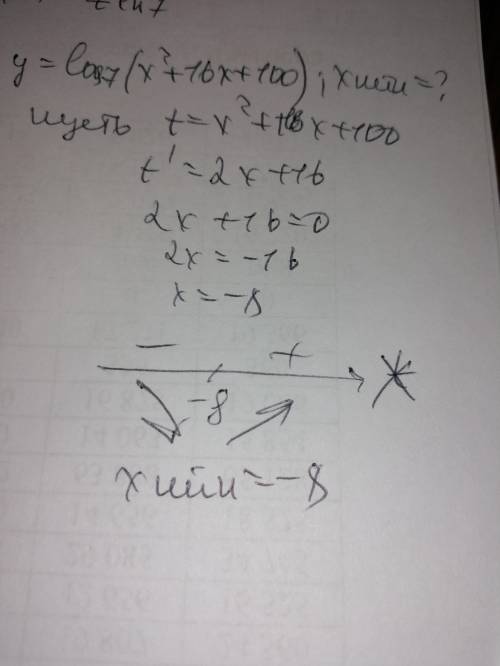 y = log₇(x²+16x+100) ; x мин = ?
пусть t = x²+16x+100
t' = 2x+16
2x+16=0
2x=-16
x=-8
− +
-8 x
x мин = -8